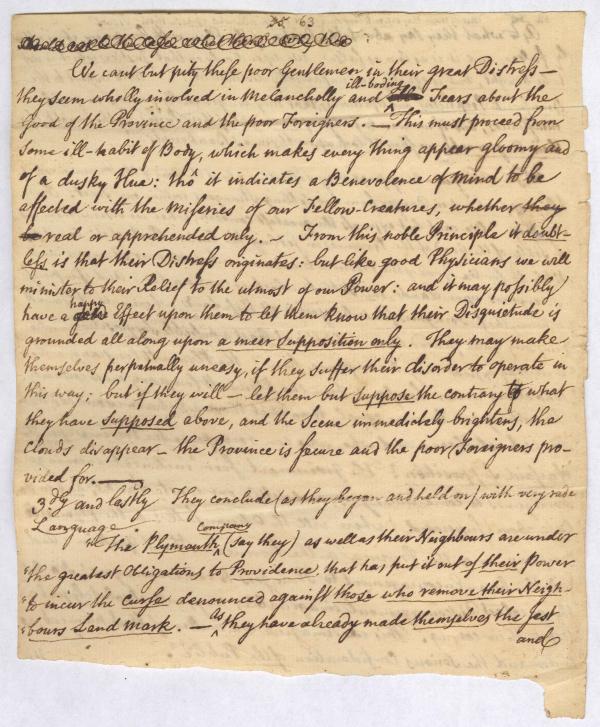 63
We cant but pity these poor Gentlemen in their great Distress —
ill-boding
they seem wholly involved in Melancholly and Fears about the
Good of the Province and the poor Foreigners. — This must proceed from
some ill-habit of Body, which makes every thing appear gloomy and
of a dusky Hue: tho' it indicates a Benevolence of Mind to be
affected with the Miseries of our Fellow-Creatures, whether they
be real or apprehended only. — From this noble Principle it doubt-
less is that their Distress originates: but like good Physicians we will
minister to their Relief to the utmost of our Power: and it may possibly
happy
have a Effect upon them to let them know that their Disquietude is
grounded all along upon a meer Supposition only. They may make
themselves perpetually uneasy, if they suffer their disorder to operate in
this way; but if they will — let them but suppose the contrary to what
they have supposed above, and the Scene immediately brightens, the
Clouds disappear — the Province is secure and the poor Foreigners pro-
vided for. —
3.dly and lastly They conclude (as they began and held on) with very rude
Language.
Company
"The Plymouth ^ (say they) as well as their Neighbours are under
"the greatest Obligations to Providence, that has put it out of their Power
"to incur the curse denounced against those who remove their Neigh-
"bours Land mark. — As they have already made themselves the Jest
and